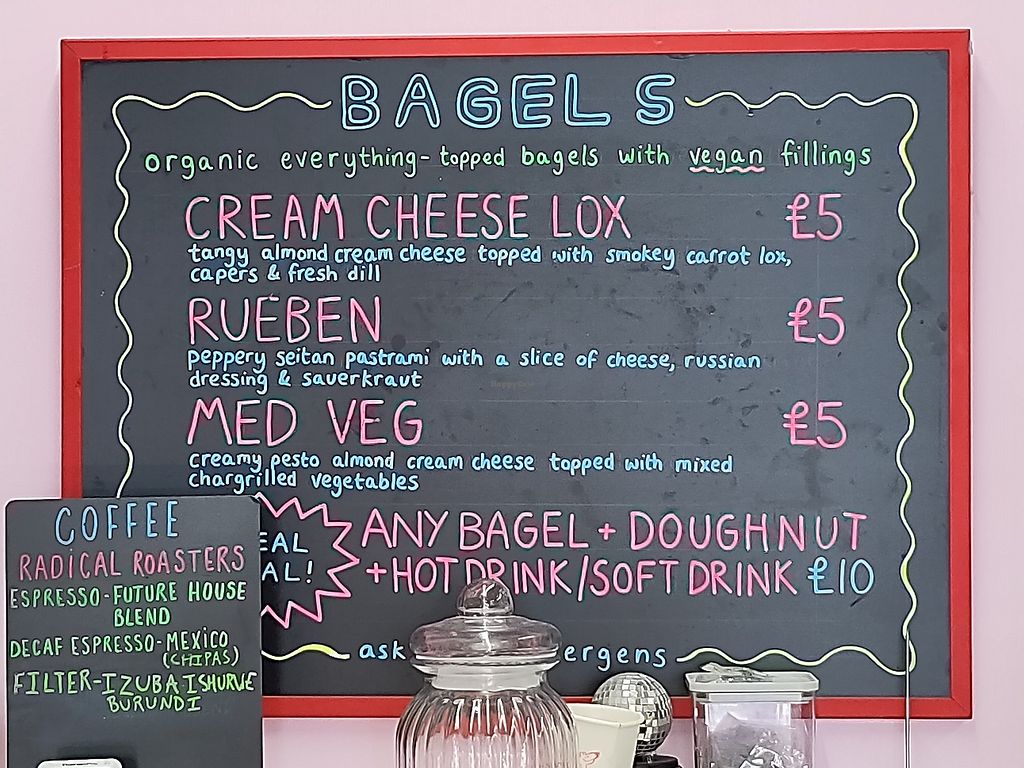 BAGELS
organic everything-topped bagels with vegan fillings
CREAM CHEESE LOX £5
tangy almond cream cheese topped with smokey carrot lox,
capers & fresh dill
RUEBEN £5
peppery seitan pastrami with a slice of cheese, russian
dressing & sauerkraut
MED VEG £5
creamy pesto almond cream cheese topped with mixed
chargrilled vegetables
EAL
AL!
ANY BAGEL + DOUGHNUT
+HOT DRINK/SOFT DRINK £10
ask ergens
COFFEE
RADICAL ROASTERS
ESPRESSO-FUTURE HOUSE
BLEND
DECAF ESPRESSO-MEXICO
(CHIPAS)
FILTER-IZUBA ISHURWE
BURUNDI